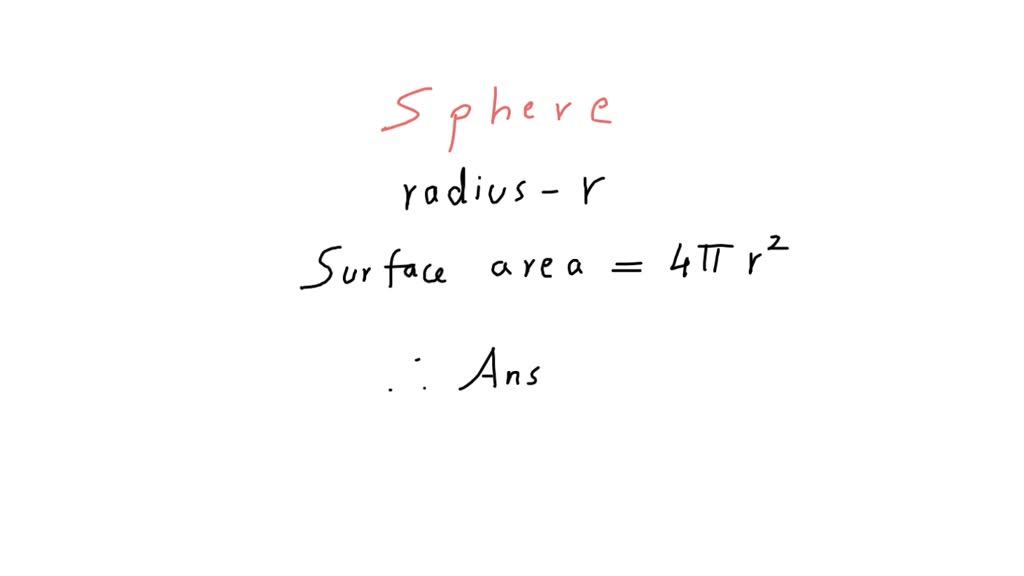 Sphere
radius - r
Surface area = 4π r²
∴ Ans